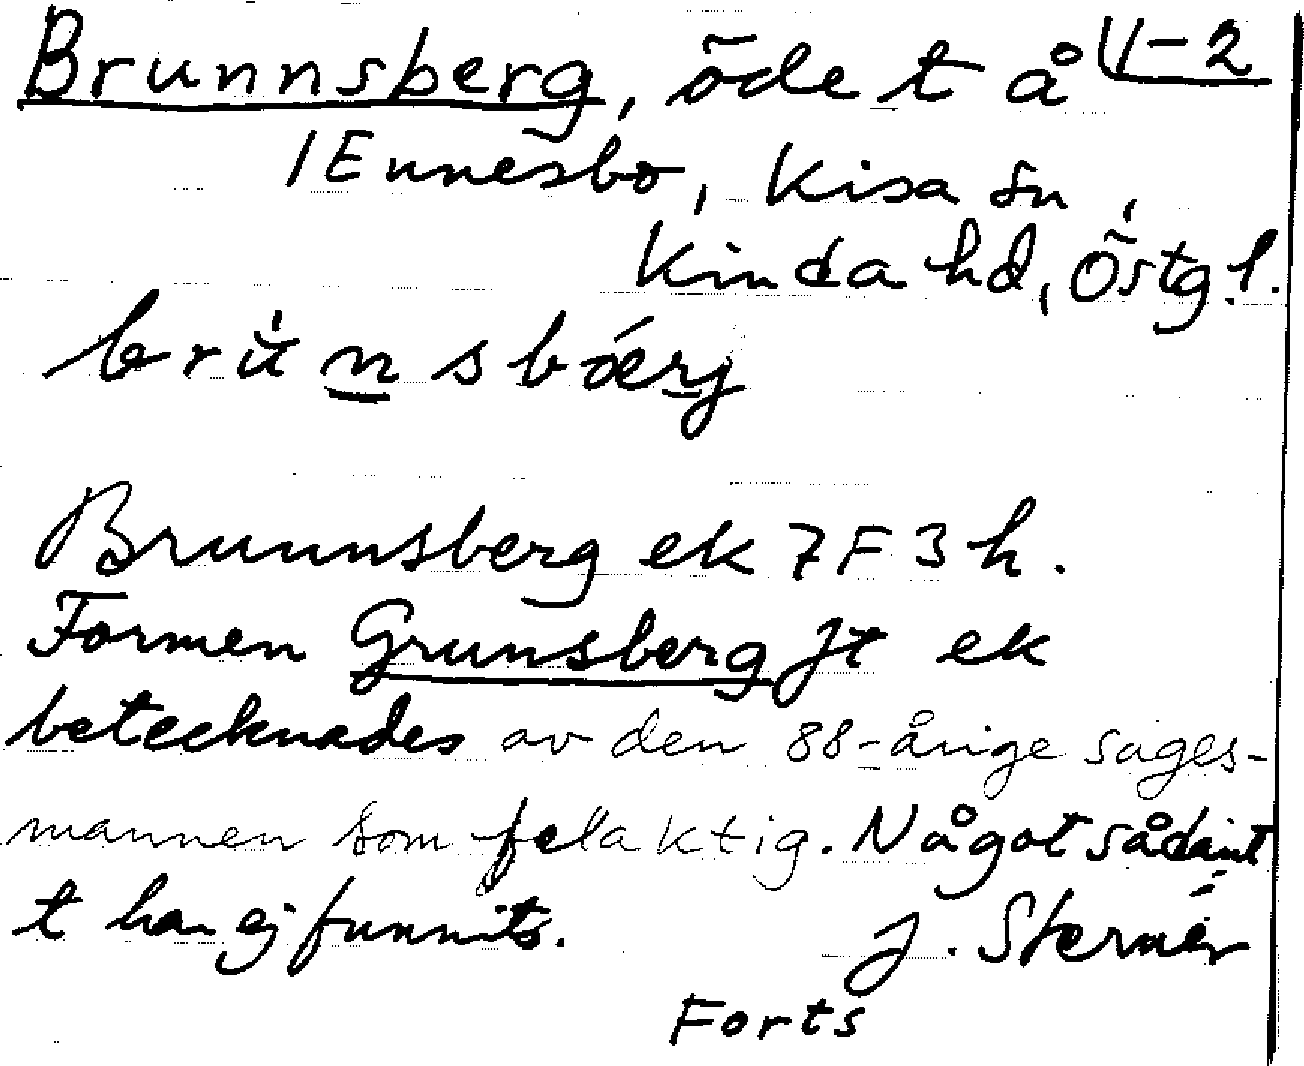 Brunnsberg, öde t å 1/1-2
1 Ennesbo, Kisa sn,
Kinda hd, Östg.l.
brún̲sbærj
Brunnsberg ek 7F3h.
Formen Grunsberg Jt ek
betecknades av den 88-årige sages-
mannen som felaktig. Något sådant
t har ej funnits.
J. Sterner
Forts